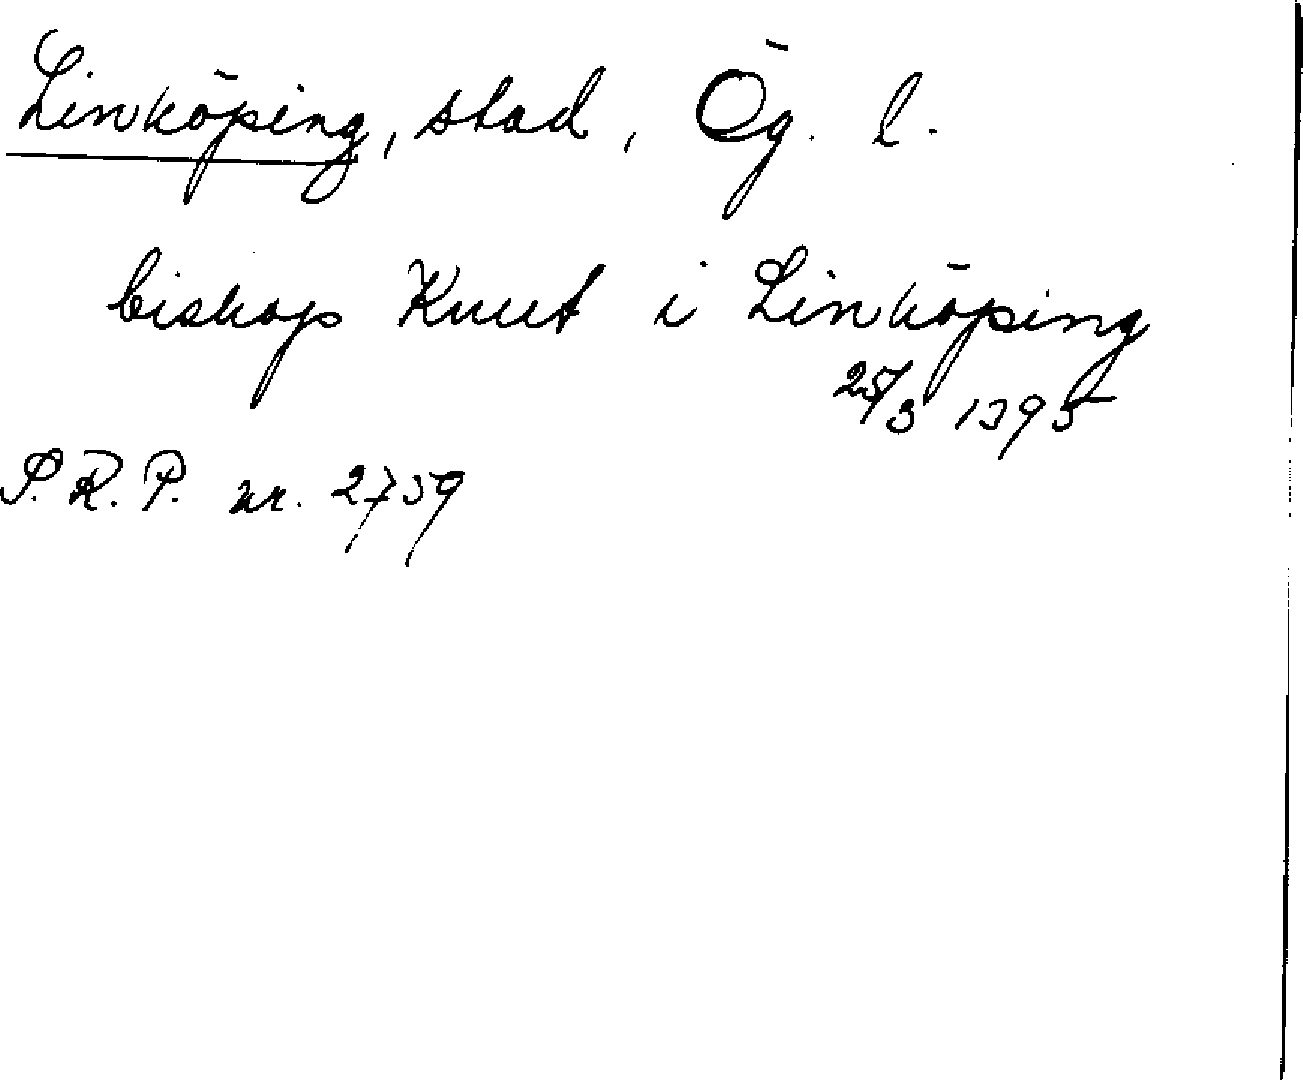 Linköping, stad, Ög. l.
biskop Knut i Linköping
25/3 1395
S.R.P. nr. 2739